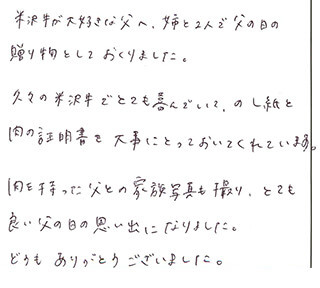 米沢牛が大好きな父へ、姉と2人で父の日の
贈り物としておくりました。
久々の米沢牛でとても喜んでいて、のし紙と
肉の証明書を大事にとっておいてくれています。
肉を持った父との家族写真も撮り、とても
良い父の日の思い出になりました。
どうもありがとうございました。